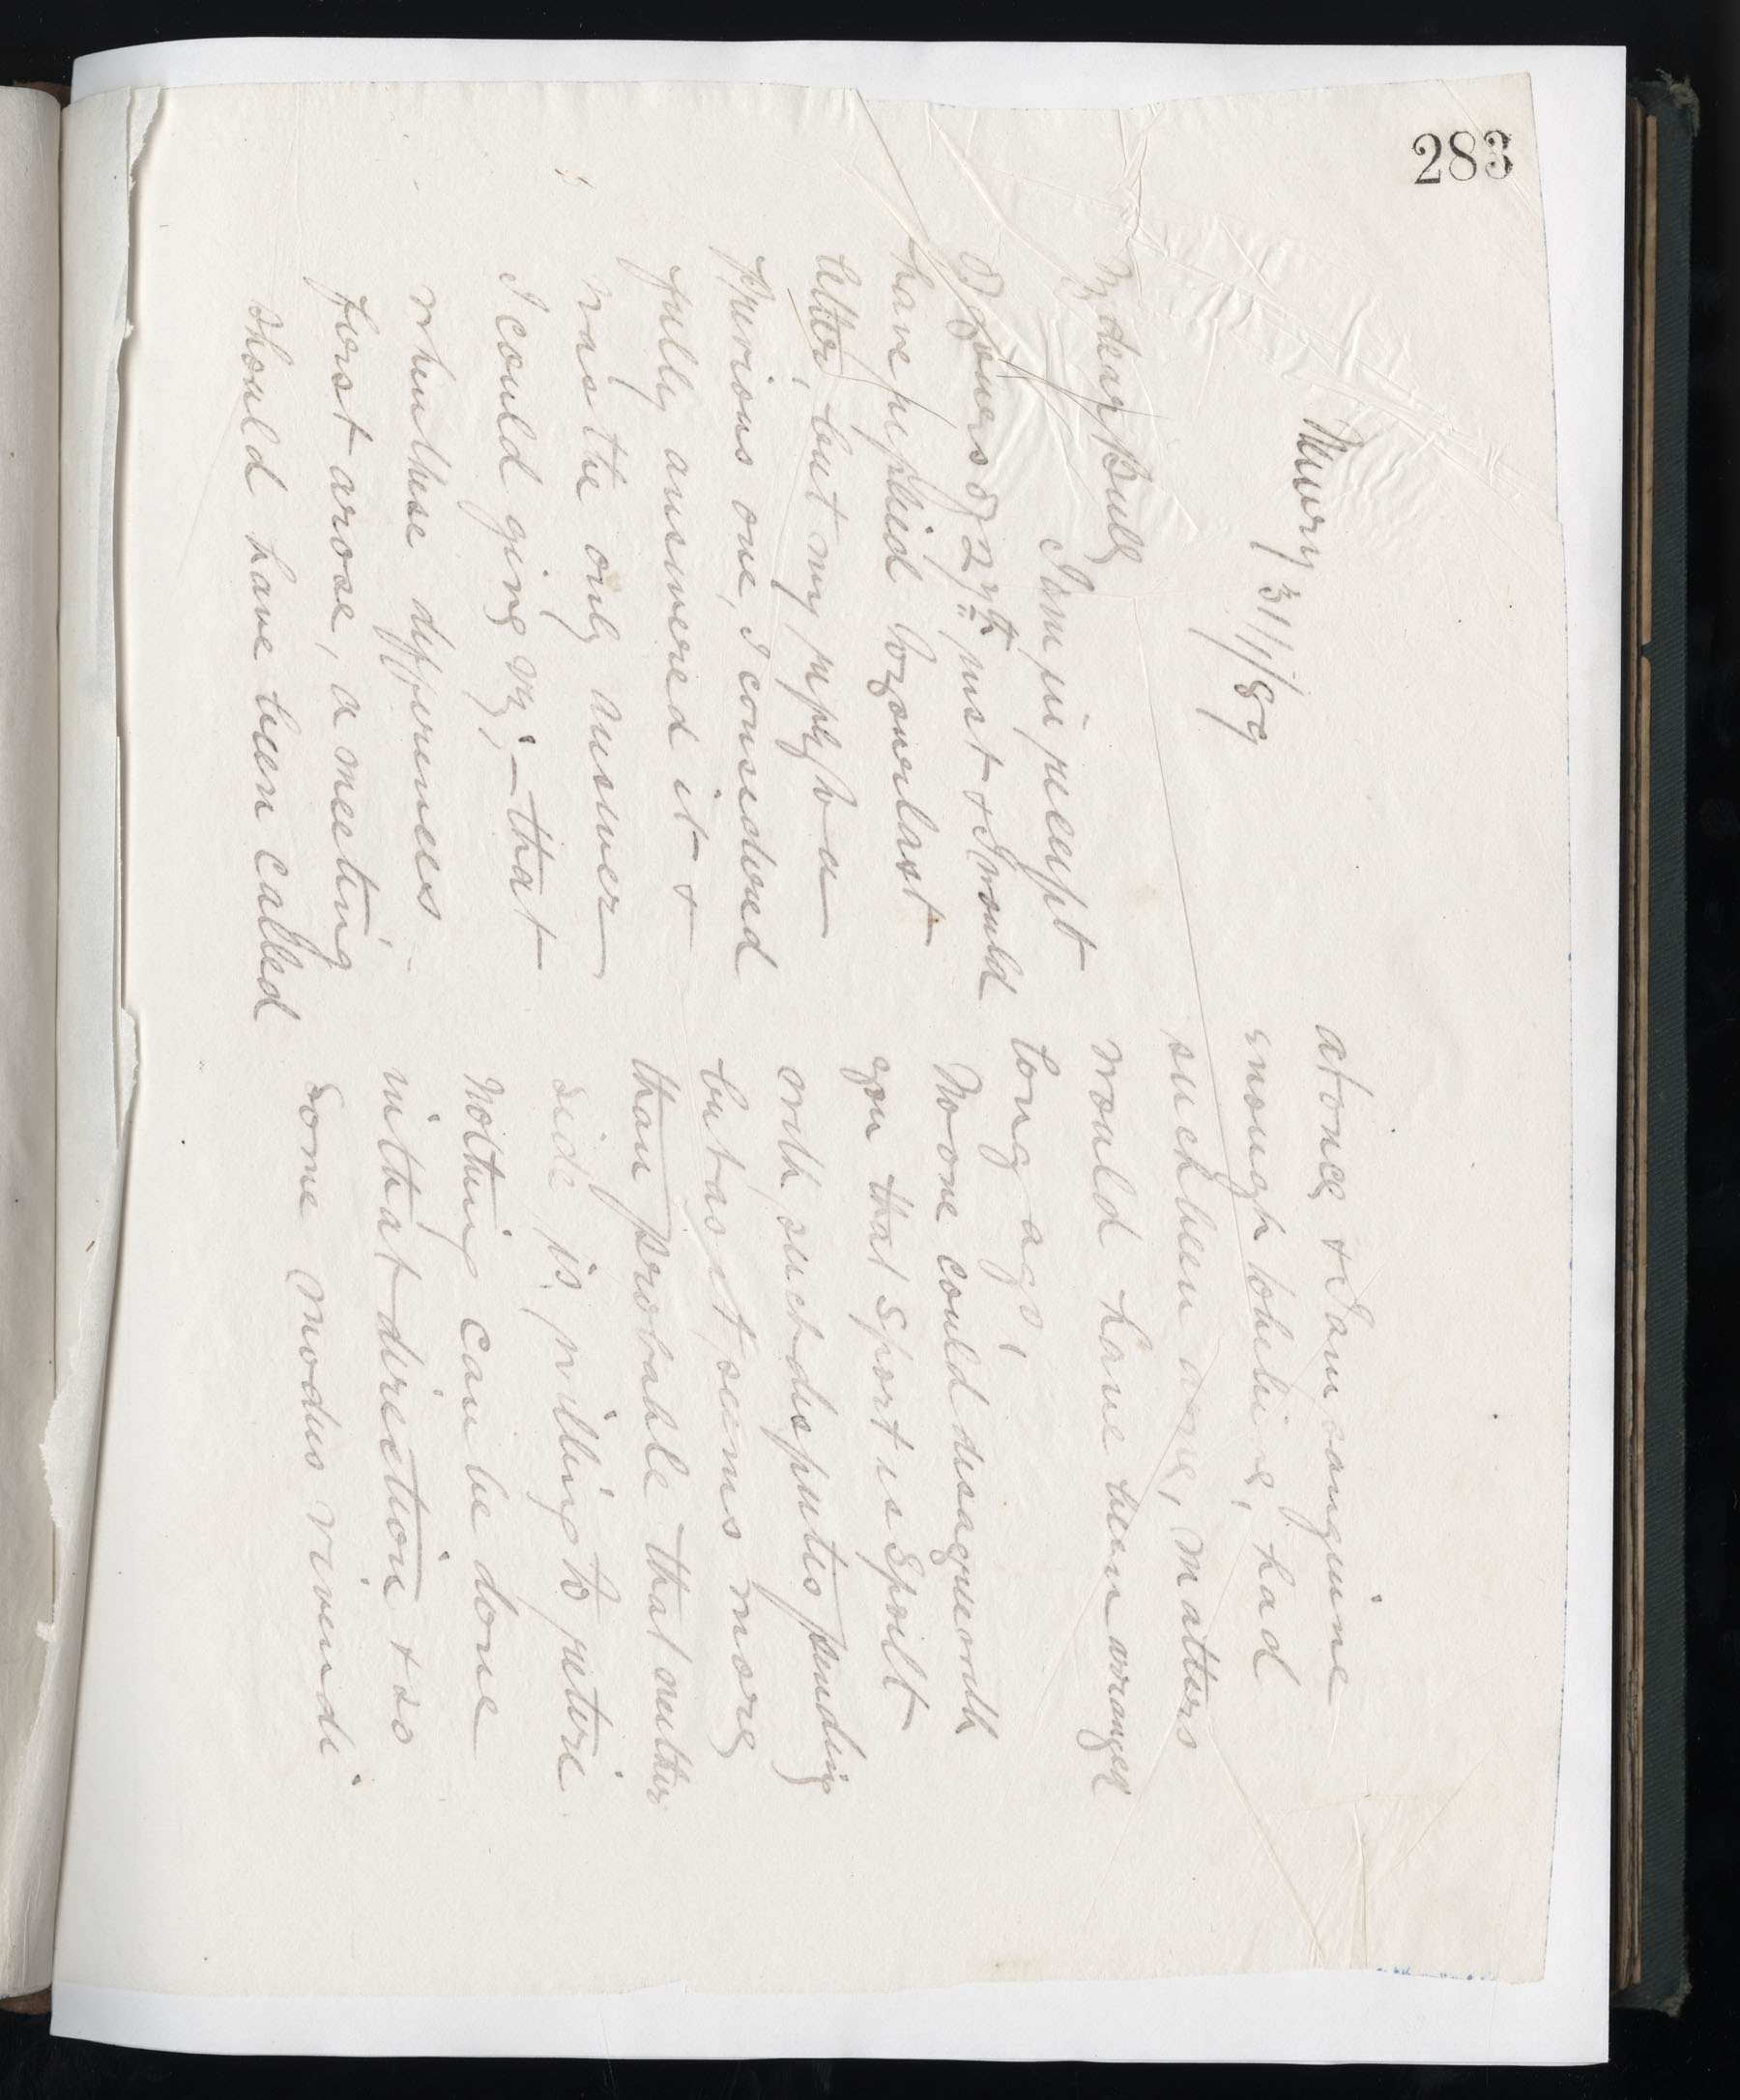 283
Newry 31/1/89
My dear Bull
I am in receipt
of yours of 27th inst & I would
have replied to your last
letter, but my reply to a
previous one, I considered
fully answered it &
was the only answer
I could give viz; - that
when these differences
first arose, a meeting
should have been called
at once & I am sanguine
enough to believe, had
such been done, matters
would have been arranged
long ago,
No one could disagree with
you that Sport is Spoilt
with such disputes pending
but as it seems more
than probable that neither
side is willing to retire
nothing can be done
in that direction & so
some modus vivendi